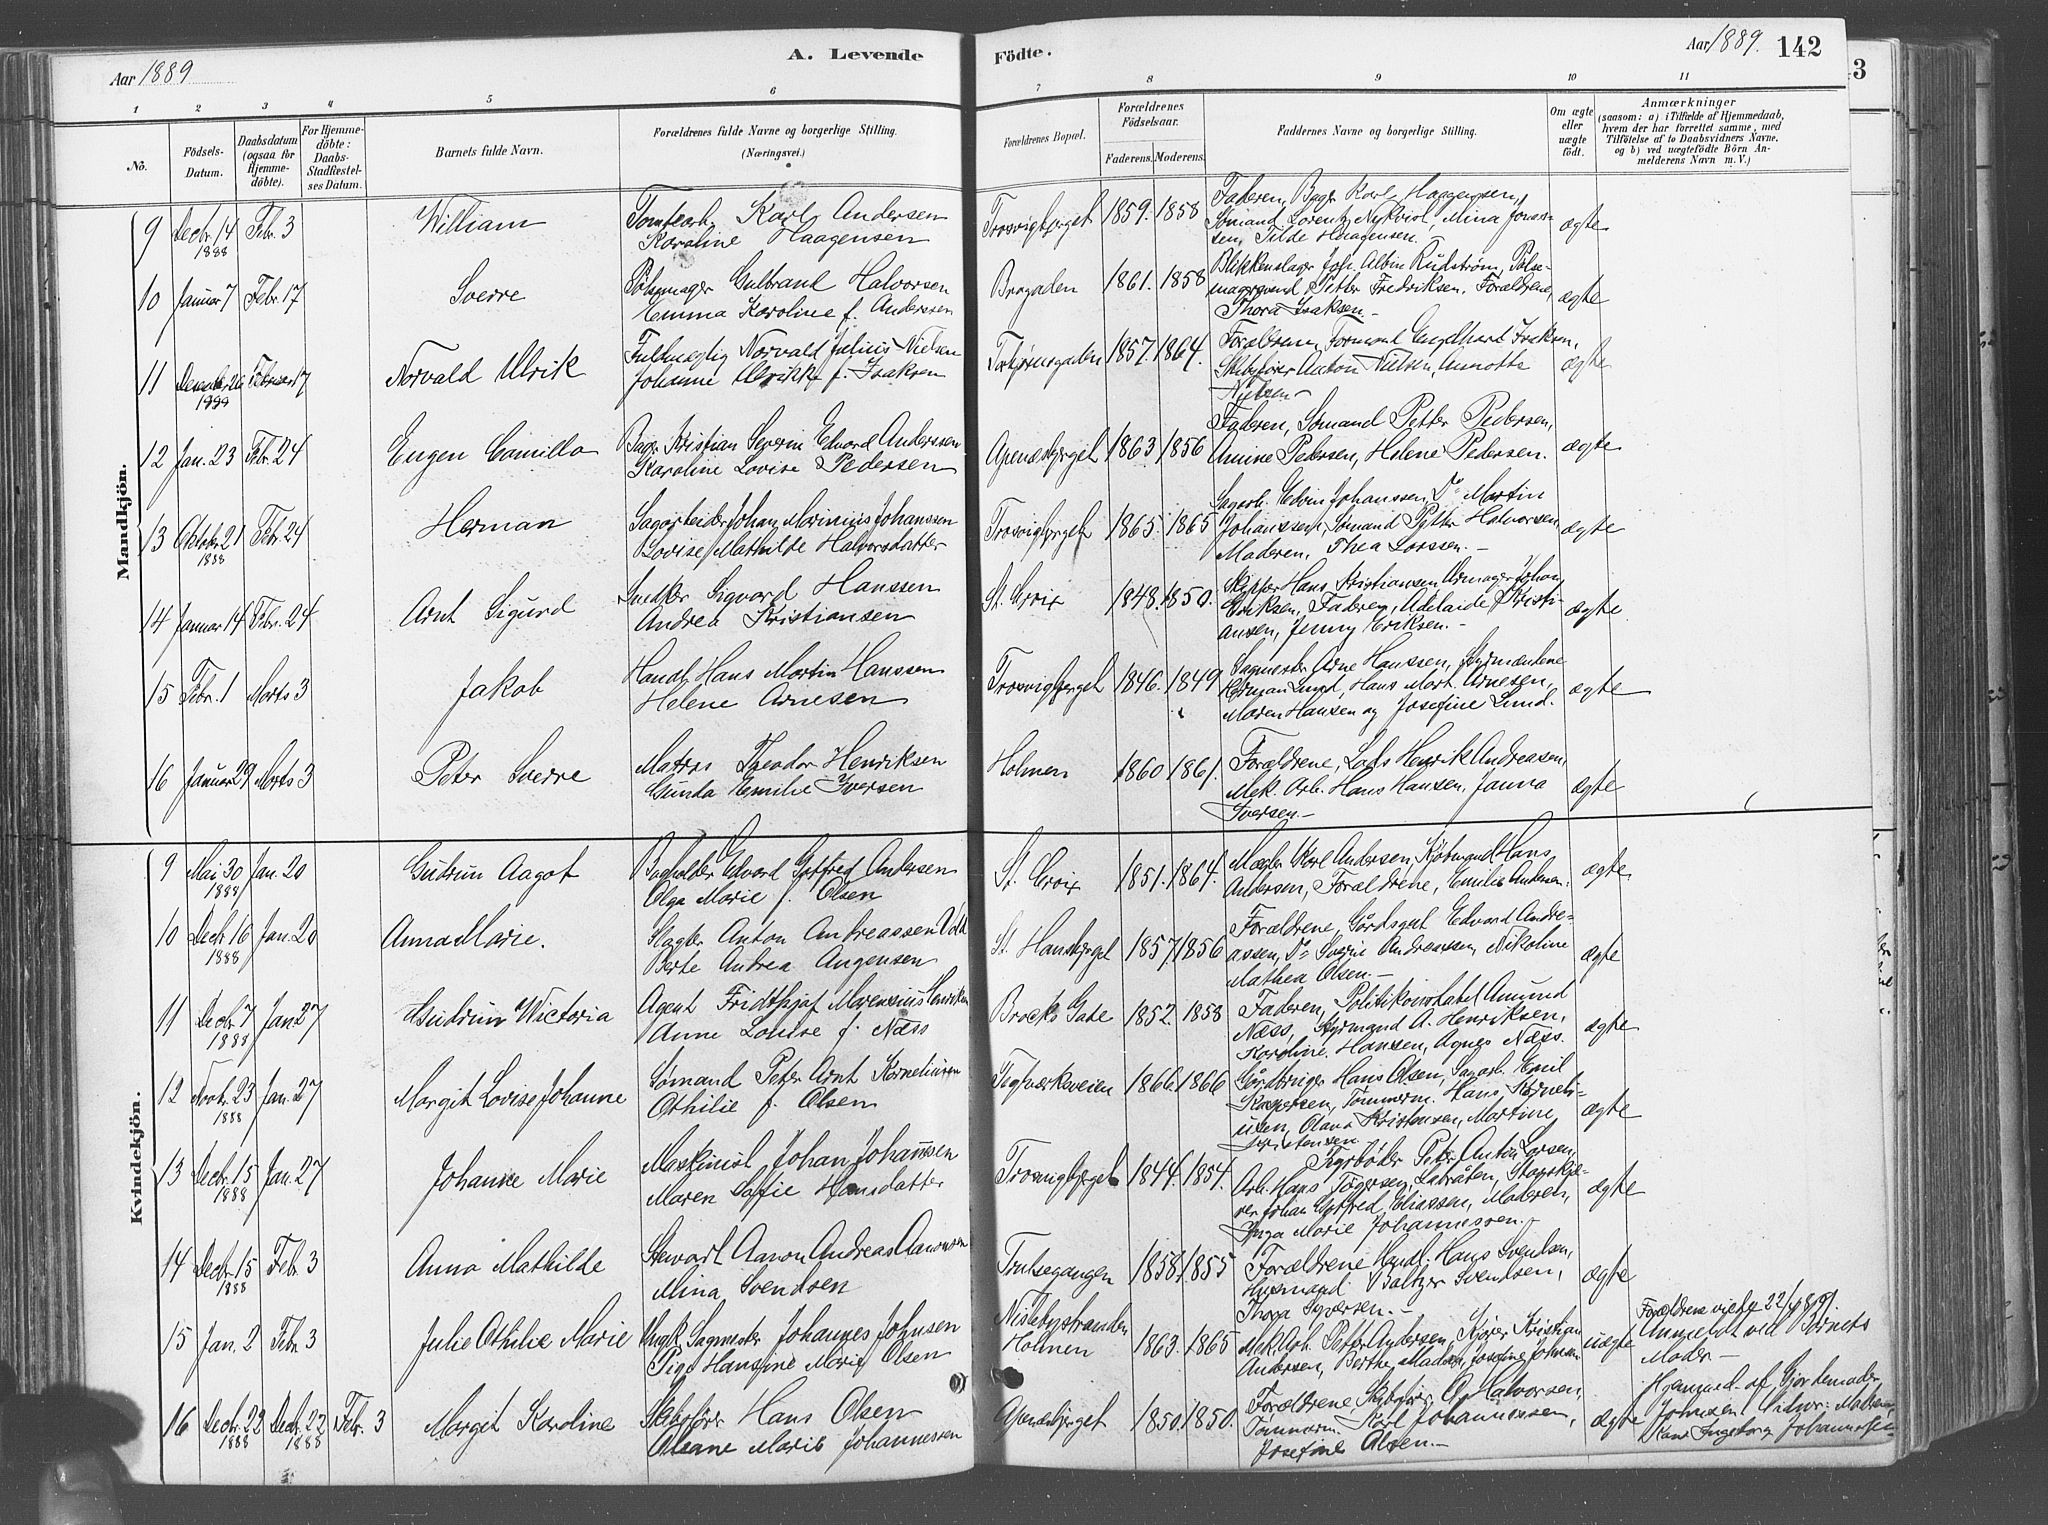 Aar 1889
A. Levende
Födte.
Aar 1889. 142
1 2 3 4 5 6 7 8 9 10 11
No.
Födsels-Datum.
Daabsdatum (ogsaa for Hjemmedöbte).
For Hjemmedöbte: Daabs-Stadfæstelses Datum.
Barnets fulde Navn.
Forældrenes fulde Navne og borgerlige Stilling.
(Næringsvei.)
Forældrenes Bopæl.
Forældrenes Födselsaar.
Faderens. Moderens.
Faddernes Navne og borgerlige Stilling.
Om ægte eller uægte födt.
Anmærkninger
(saasom: a) i Tilfælde af Hjemmedaab, hvem der har forrettet samme, med Tilföielse af to Daabsvidners Navne. og b) ved uægtefödte Börn Anmelderens Navn m. V.)
Mandkjön.
9 Decbr. 14 1888 Febr. 3 William
Tomtearb. Karl Andersen
Karoline Haagensen
Trosvigbjerget 1859. 1858
Faderen, Bager Karl Haagensen,
Sömand Lorentz Nykvist, Mina Jonas-
sen, Tilde Haagensen.
ægte
10 Januar 7 Febr. 17 Sverre
Pölsemager Gulbrand Halvorsen
Emma Karoline f. Andersen
Brogaden 1861. 1858
Blikkenslager Joh. Albin Rudström, Pölse-
magersvend Petter Fredriksen. Forældrene,
Thora Isaksen.-
ægte
11 December 26 1888 Februar 17 Norvald Ulrik
Fuldmægtig Norvald Julius Nielsen
Johanne Ulrikke f. Isaksen
1857. 1864.
Forældrene, Formand Engelhart Isaksen,
Skibsfører Anton Nielsen, Annette
Nielsen-
ægte
12 Jan. 23 Febr. 24 Eugen Camillo
Bager Kristian Severin Edvard Anderssen
Karoline Lovise Pedersen
Apenæsbjerget 1863 1856
Faderen, Sömand Petter Pedersen,
Amine Pedersen, Helene Pedersen.
ægte
13 Oktober 21 1888 Febr. 24 Herman
Sagarbeider Johan Marinius Johanssen
Lovise Mathilde Halvorsdatter
Trosvigbjerget 1865. 1865
Sagarb. Edvin Johanssen, Do Martin
Johanssen, Sömand Petter Halvorsen,
Moderen, Thea Larssen.-
ægte
14 Januar 14 Febr. 24 Arnt Sigurd
Snedker Sigvard Hanssen
Andrea Kristiansen
St. Croix 1848. 1850.
Skipper Hans Kristiansen, Urmager Johan
Eriksen, Faderen, Adelaide Kristi-
ansen, Jenny Eriksen.-
ægte
15 Febr. 1 Marts 3 Jakob
Handl. Hans Martin Hanssen
Helene Arnesen
Trosvigbjerget 1846. 1849
Sagmester Arne Hanssen, Styrmændene
Herman Lund, Hans Mart. Arnesen,
Maren Hansen og Josefine Lund.
ægte
16 Januar 29 Marts 3 Peter Sverre
Matros Theodor Henriksen
Gunda Emilie Iversen
Holmen 1860 1861.
Forældrene, Lods Henrik Andreasen,
Mek. Arb. Hans Hansen, Janna
Iversen.-
ægte
Kvindekjön.
9 Mai 30 1888 Jan. 20 Gudrun Aagot
Bogholder Edvard Gotfred Andersen
Olga Marie f. Olsen
St. Croix 1851. 1864.
Mægler Karl Andersen, Kjöbmand Hans
Andersen, Forældrene, Emilie Andersen.
ægte
10 Decb. 16 1888 Jan. 20 Anna Marie.
Slagter Anton Andreassen
Berte Andrea Angensen
St. Hansbjerget 1857. 1856
Forældrene, Gårdsgut Edvard Andre-
assen, Do Andreassen, Nikoline
Mathea Olsen.-
ægte
11 Decbr. 7 1888 Jan. 27 Gudrun Victoria
Agent Fridthjof Marensius Henriksen
Anne Louise f. Næss
Brocks Gade 1852. 1858
Faderen, Politikonstabel Amund
Næss, Styrmand A. Henriksen,
Karoline Hansen, Agnes Næss.
ægte
12 Novbr. 23 1888 Jan. 27 Margit Lovise Johanne
Sömand Peter Arnt Korneliusen
Othilie f. Olsen
Teglværksveien 1866. 1866
Gårdbruger Hans Olsen, Sagarb. Emil
Kaspersen, Tömmerm. Hans Korneli-
usen, Olava Kristensen, Martine
Kristensen
ægte
13 Decbr. 15 1888 Jan. 27 Johanne Marie
Maskinist Johan Johannsen
Maren Sofie Hansdatter
Trosvigbjerget 1844. 1854.
Fyrböder Peter Anton Larsen,
Arb. Hans Tögersen, Labråten,
Johan Gotfred Eliassen, Moderen,
Inga Marie Johannessen.
ægte
14 Decbr. 15 1888 Febr. 3 Anna Mathilde
Stevart Aanon Andreas Aanonsen
Mina Svendsen
1858. 1855
Forældrene Handl. Hans Svendsen,
Husmand Baltzer Svendsen,
Thora Syversen.-
ægte
15 Jan. 2 Febr. 3 Julie Othilie Marie
Ungk. Sagmester Johannes Johnsen
Pige Hansine Marie Olsen
Nislebystranden
Holmen 1863. 1865
Mek. Arb. Peter Andersen, Kjører Kristian
Andersen, Berthe Madsen, Josefine Johnsen
uægte
Forældrene viede 22/4 1889.
Anmeldt ved Barnets
Moder-
16 Decbr. 22 1888 Decbr. 22 1888 Febr. 3 Margit Karoline
Skibsfører Hans Olsen
Oleane Marie Johannessen
Apenæsbjerget 1850. 1850.
Forældrene Skibsfører O. Halvorsen,
Tömmerm. Karl Johannessen,
Josefine Olsen.-
ægte
Hjemmed. af Gjordemoder
Johnsen. Vidner: Mathea
Ingeborg Johannesen